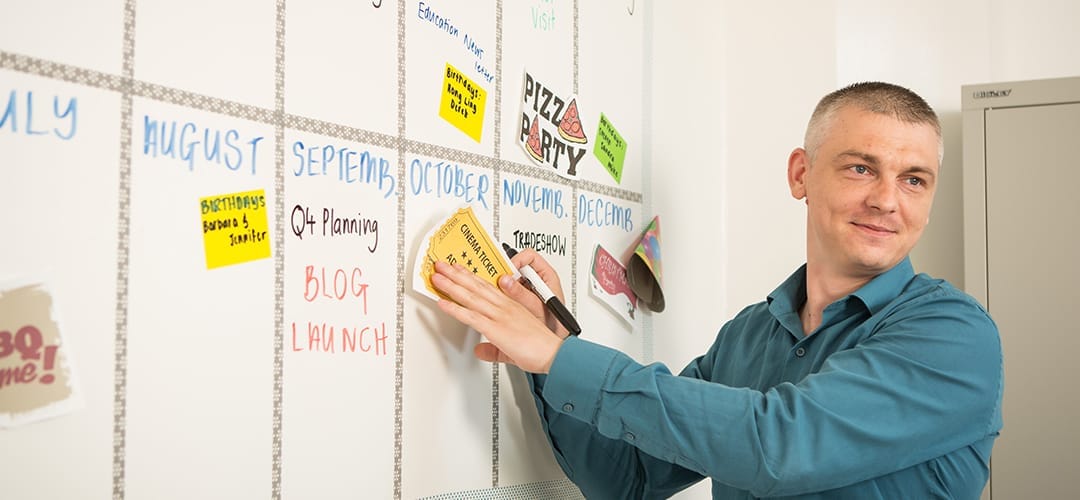 Education News
letter
Visit
Birthdays:
Rong Ling
Derek
PIZZA
PARTY
Birthdays:
JULY
AUGUST
SEPTEMB.
OCTOBER
NOVEMB.
DECEMB.
BIRTHDAYS
Barbara &
Jennifer
Q4 Planning
BLOG
LAUNCH
CINEMA TICKET
TRADESHOW
BBQ
me!
BISLEY